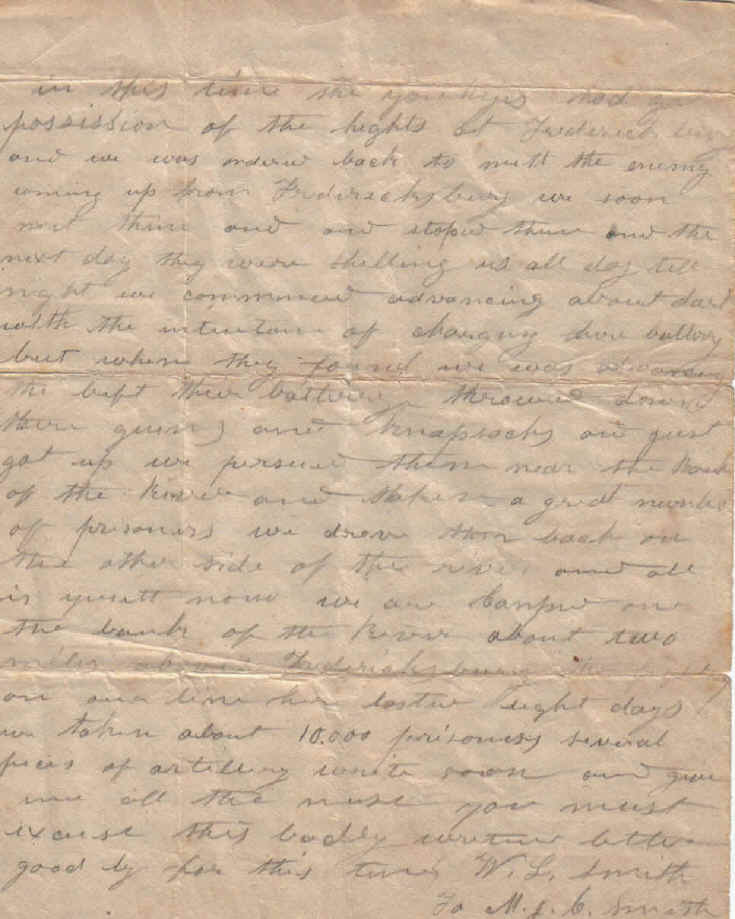 in this time the yankeys had
possission of the hights at
and we was orderd back to mett the enemy
coming up from Fredericksburg we soon
met them and and stoped them and the
next day they were shelling us all day till
night we commenced advancing about dark
with the intention of charging there battery
but when they found we was advancing
the left their battery throwed down
there guns and knapsacks and just
got up we persued them near the Bank
of the River and taken a great number
of prisoners we drove them back on
the other side of the river and all
is quiett now we are Camped on
the bank of the River about two
miles above Fredericksburg
on our line has lasted eight days
we taken about 10.000 prisoners several
peces of artillery write soon and give
me all the nuse you must
excuse this badly letter
good by for this time W. L. Smith
To M. E. C. Smith